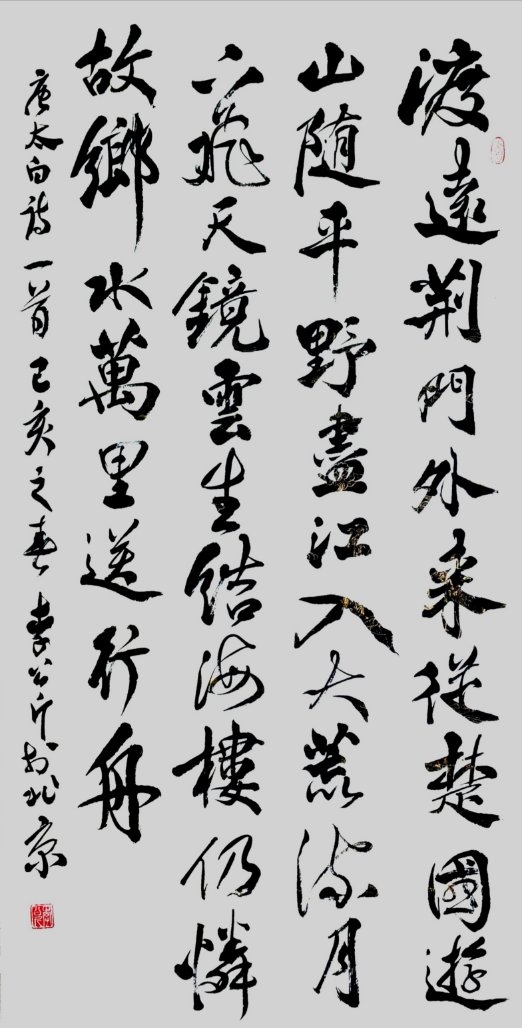 渡遠荆門外来從楚國遊
山随平野盡江入大荒流月
下飛天鏡雲生結海樓仍憐
故鄉水萬里送行舟
唐太白詩一首己亥之春李公於北京